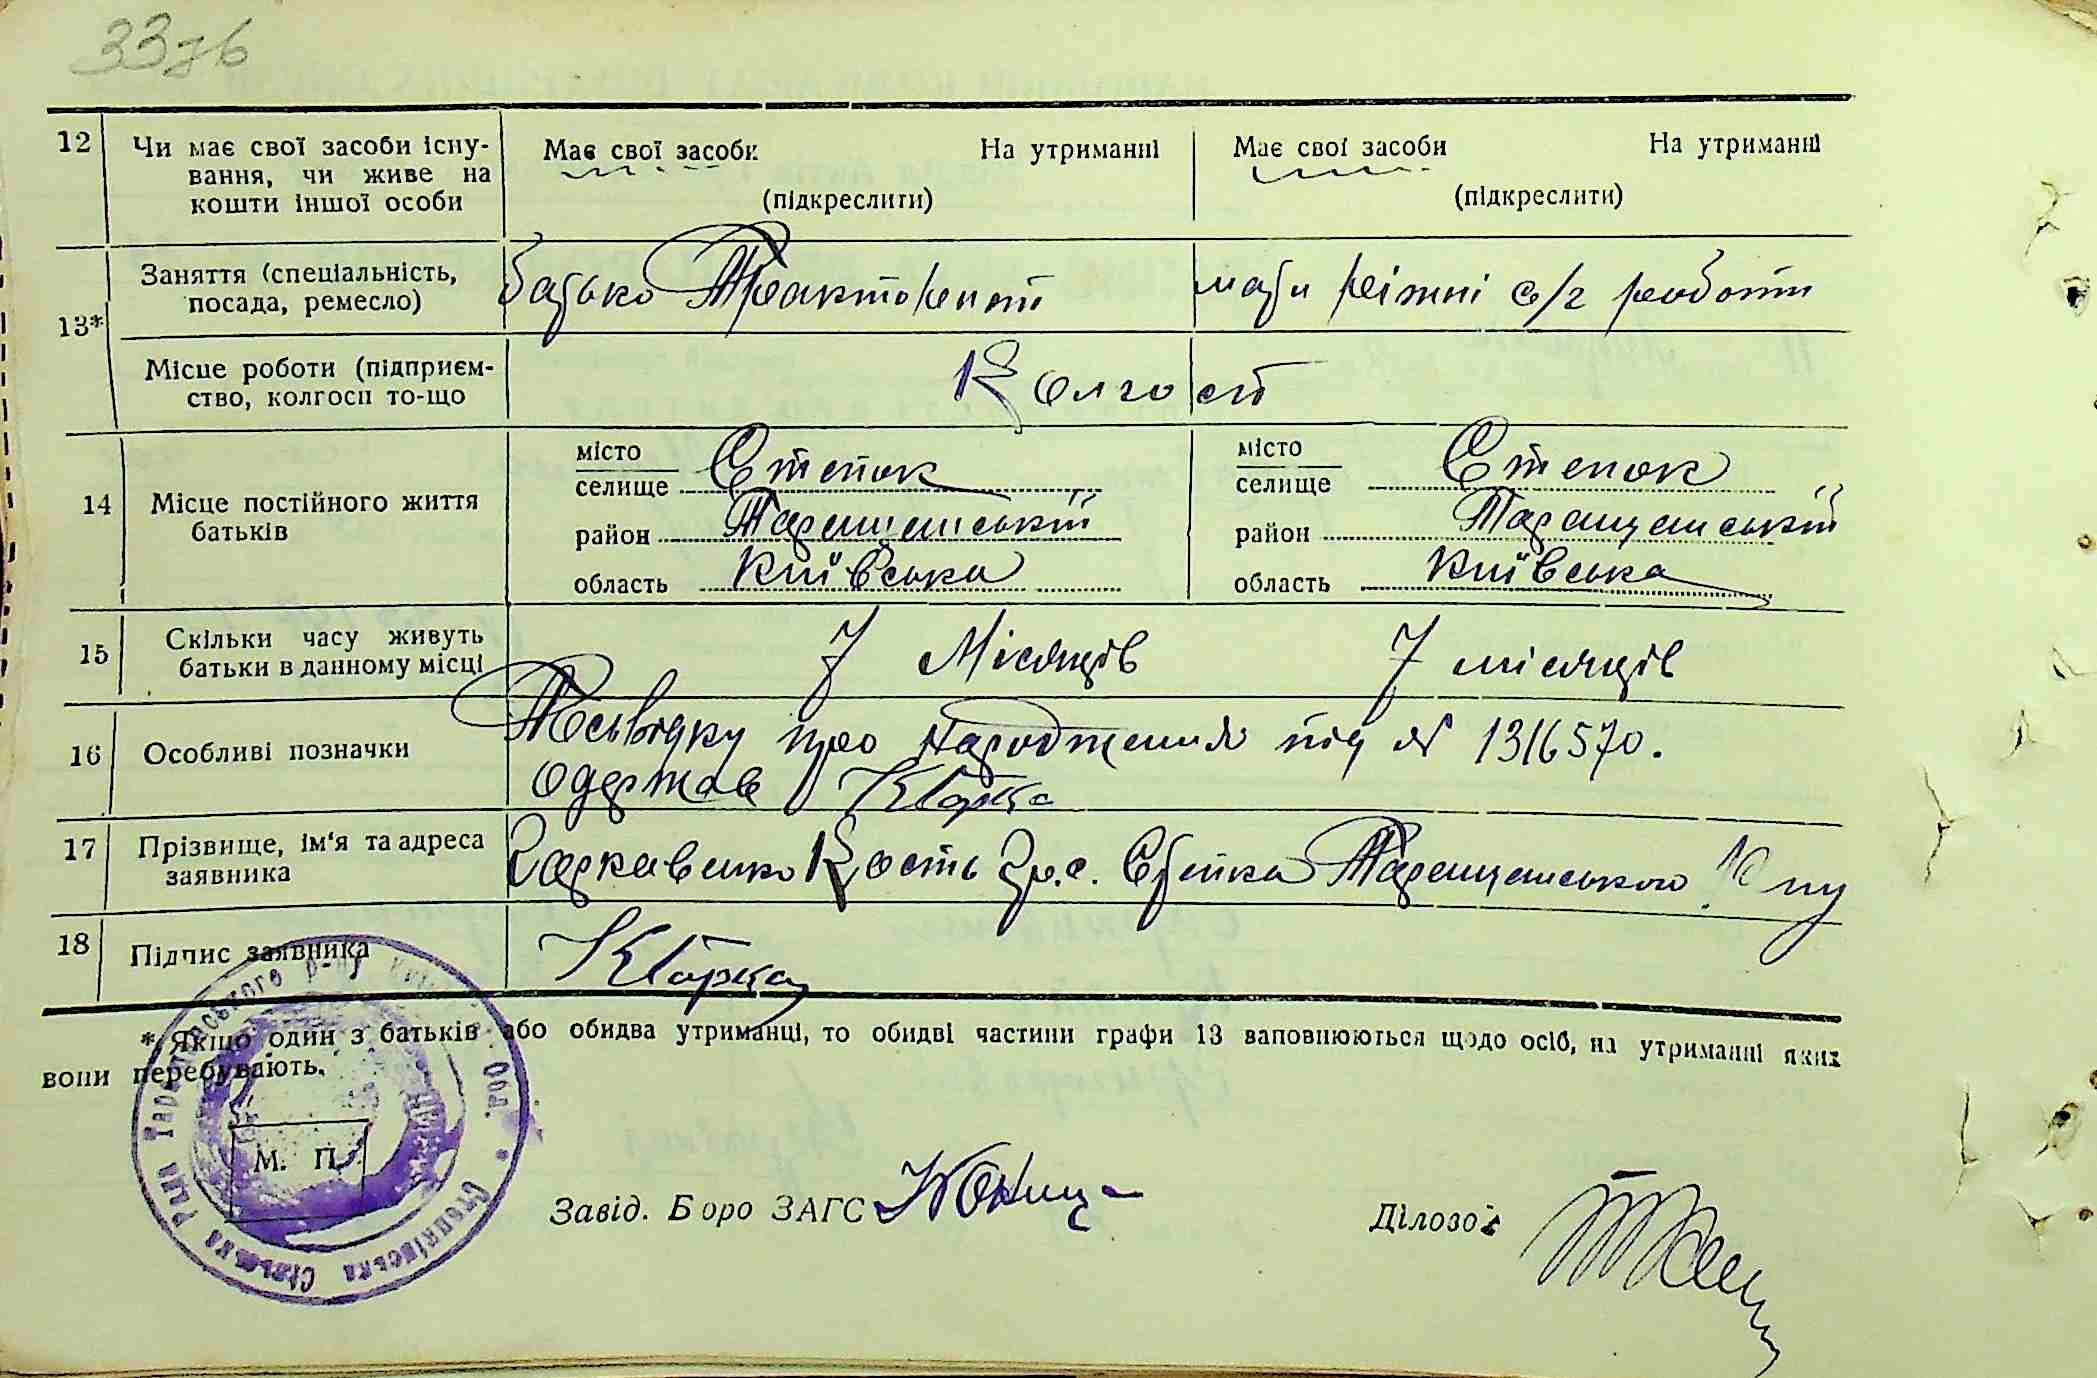 33зв
12 Чи має свої засоби існу- Має свої засоби На утриманні Має свої засоби На утриманні
вання, чи живе на
кошти іншої особи (підкреслити) (підкреслити)
13* Заняття (спеціальність, батько Тракторист мати ріжні с/г роботи
посада, ремесло)
Місце роботи (підприєм- Колгосп
ство, колгосп то-що
14 Місце постійного життя батьків
місто селище Степок місто селище Степок
район Таращанський район Таращанський
область Київська область Київська
15 Скільки часу живуть 7 Місяців 7 місяців
батьки в данному місці
16 Особливі позначки Посвідку про народження під № 1316570.
одержав
17 Прізвище, ім'я та адреса Кость гр. с. Степка Таращанського
заявника
18 Підпис заявника
* Якщо один з батьків або обидва утриманці, то обидві частини графи 13 заповнюються щодо осіб, на утриманні яких
вони перебувають.
Степківська Сільська Рада Таращанського р-ну Обл.
М. П.
Завід. Бюро ЗАГС Діловод